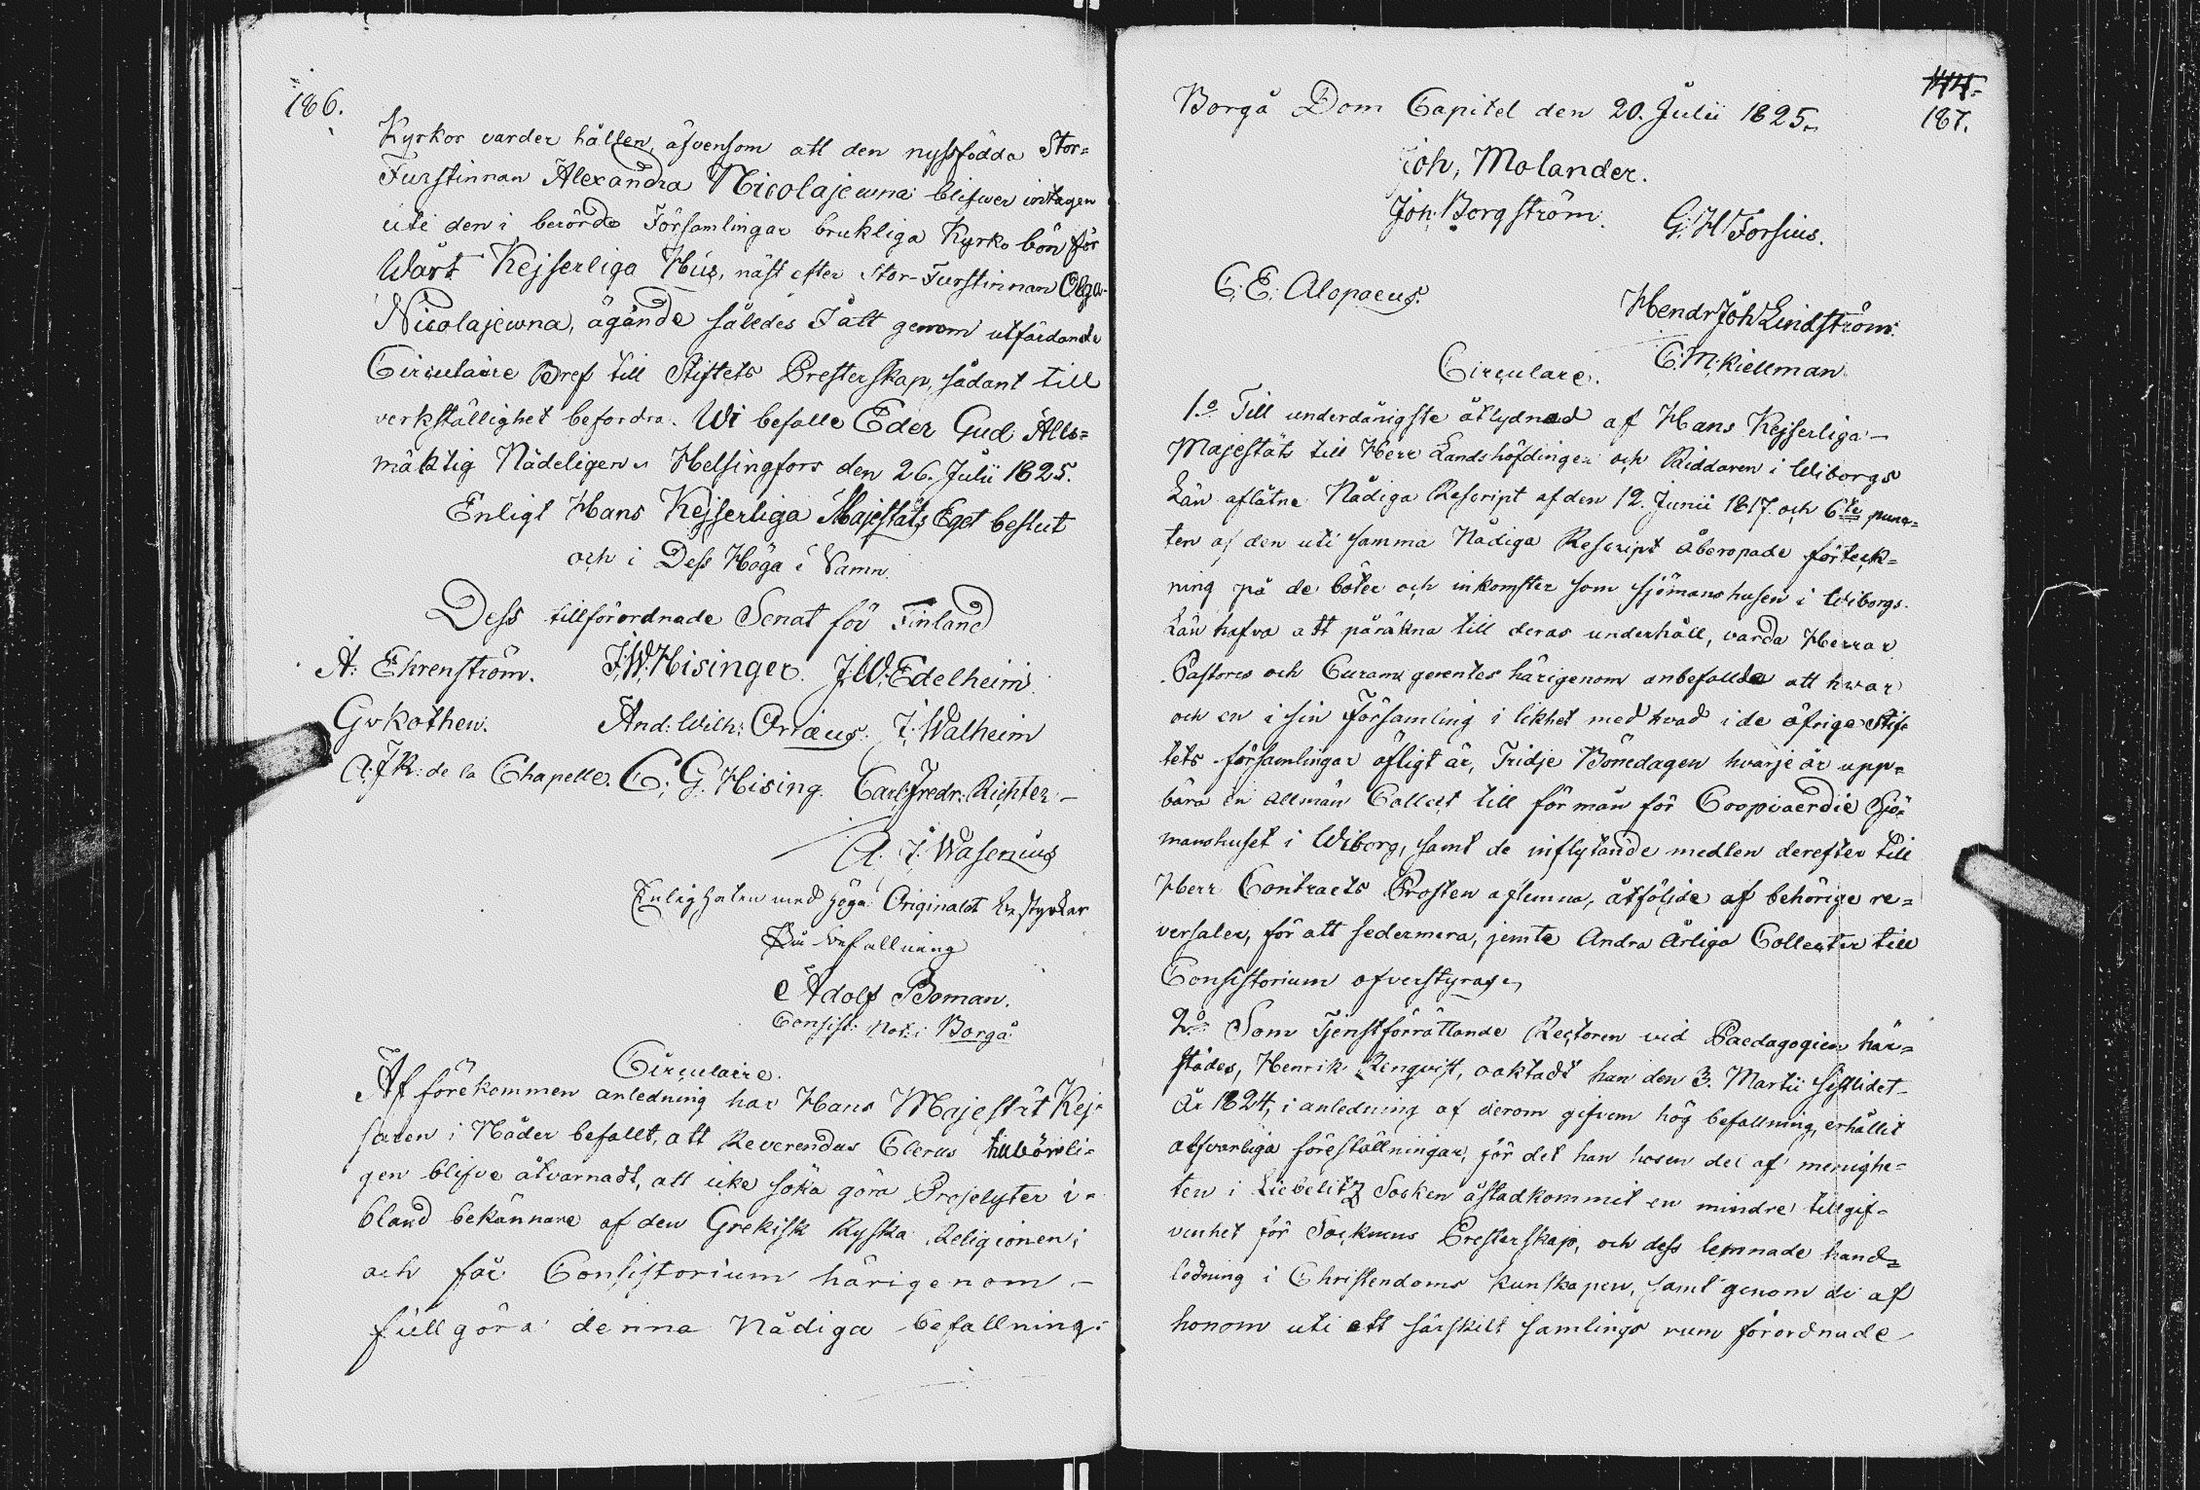 186.
Kyrkor varder hållen, äfvensom att den nyssfödda Stor=
Furstinnan Alexandra Nicolajewna blifwer intagen
uti den i berörde Församlingar brukliga Kyrko bön för
Wårt Kejserliga Hus, näst efter Stor-Furstinnan Olga
Nicolajewna, ägande således I att genom utfärdande
Circulaire Bref till Stiftets Presterskap, sådant till
verkställighet befordra. Wi befalle Eder Gud Alls=
mäktig Nådeligen. Helsingfors den 26. Julii 1825.
Enligt Hans Kejserliga Majestäts Eget beslut
och i Dess Höga Namn.
Dess tillförordnade Senat för Finland
A: Ehrenström. J.W. Hisinger. J.W. Edelheim.
G v Kothen. And: Wilh: Orræus. J. Walheim
A.F.R: de la Chapelle. C. G. Hising. Carl Fredr: Richter –
A. J. Wasenius
Enligheten med höga Originalet bestyrker
På befallning
Adolf Boman.
Consist: Not: i Borgå
Circulaire.
Af förekommen anledning har Hans Majestät Kej=
saren i Nåder befallt, att Reverendus Clerus tillbörli=
gen blifve åtvarnadt, att icke söka göra Proselyter i=
bland bekännare af den Grekisk Ryska Religionen;
och får Consistorium härigenom –
fullgöra denna Nådiga befallning.
187.
Borgå Dom Capitel den 20. Julii 1825.
Joh, Molander.
Joh. Borgström. G. H Forsius.
C. E. Alopaeus.
Hendr Joh Lindström.
Circulare. C. M. Kiellman
1.o Till underdånigste åtlydnad af Hans Kejserliga –
Majestäts till Herr Landshöfdingen och Riddaren i Wiborgs
Län aflåtne Nådiga Rescript af den 12. Junii 1817. och 6te punc=
ten af den uti samma Nådiga Rescript åberopade förteck=
ning på de böter och inkomster som sjömanshusen i Wiborgs
Län hafva att påräkna till deras underhåll, varda Herrar
Pastores och Curam gerentes härigenom anbefallde att hvar
och en i sin Församling i likhet med hvad i de öfrige Stif=
tets församlingar öfligt är, Tridje Bönedagen hvarje år upp=
bära en allmän Collect till förmån för Coopvaerdie Sjö=
manshuset i Wiborg, samt de inflytande medlen derefter till
Herr Contracts Prosten aflemna, åtföljde af behörige re=
versaler, för att sedermera, jemte Andra Årliga Collecter till
Consistorium ofverstyras.
2o Som Tjenstförrättande Rectoren vid Paedagogien här=
städes, Henrik Renqvist, oaktadt han den 3. Martii sistlidet
År 1824, i anledning af derom gifven hög befallning, erhållit
alfvarliga föreställningar, för det han hosen del af menighe=
ten i Liebelitz Socken åstadkommit en mindre tillgif=
venhet för Socknens Presterskap, och dess lemnade hand=
ledning i Christendoms kunskapen, samt genom de af
honom uti ett särskilt samlings rum förordnade